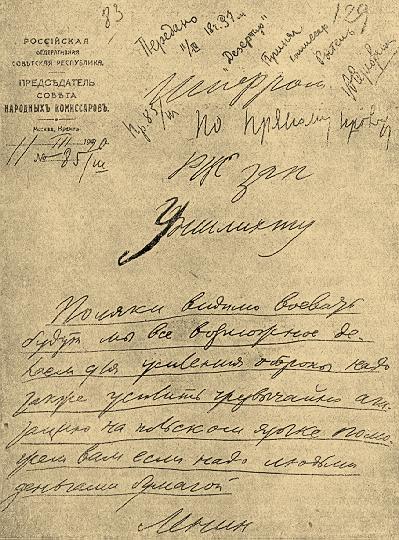 83
129
Передано
11/III 18 ч. 37 м.
"Дежурный"
Принял
комиссар
РОССІЙСКАЯ
ФЕДЕРАТИВНАЯ
СОВѢТСКАЯ РЕСПУБЛИКА.
ПРЕДСѢДАТЕЛЬ
СОВѢТА
НАРОДНЫХЪ КОМИССАРОВЪ.
Москва, Кремль.
11/III 1920
№ 85/III
Шифром
Пр. 85/III
По прямому проводу
РЖ зап
Уншлихту
Поляки видимо воевать
будут мы все возможное де-
лаем для усиления обороны надо
также усилить чрезвычайно аги-
тацию на польском языке помо-
жем вам если надо людьми
деньгами бумагой
Ленин